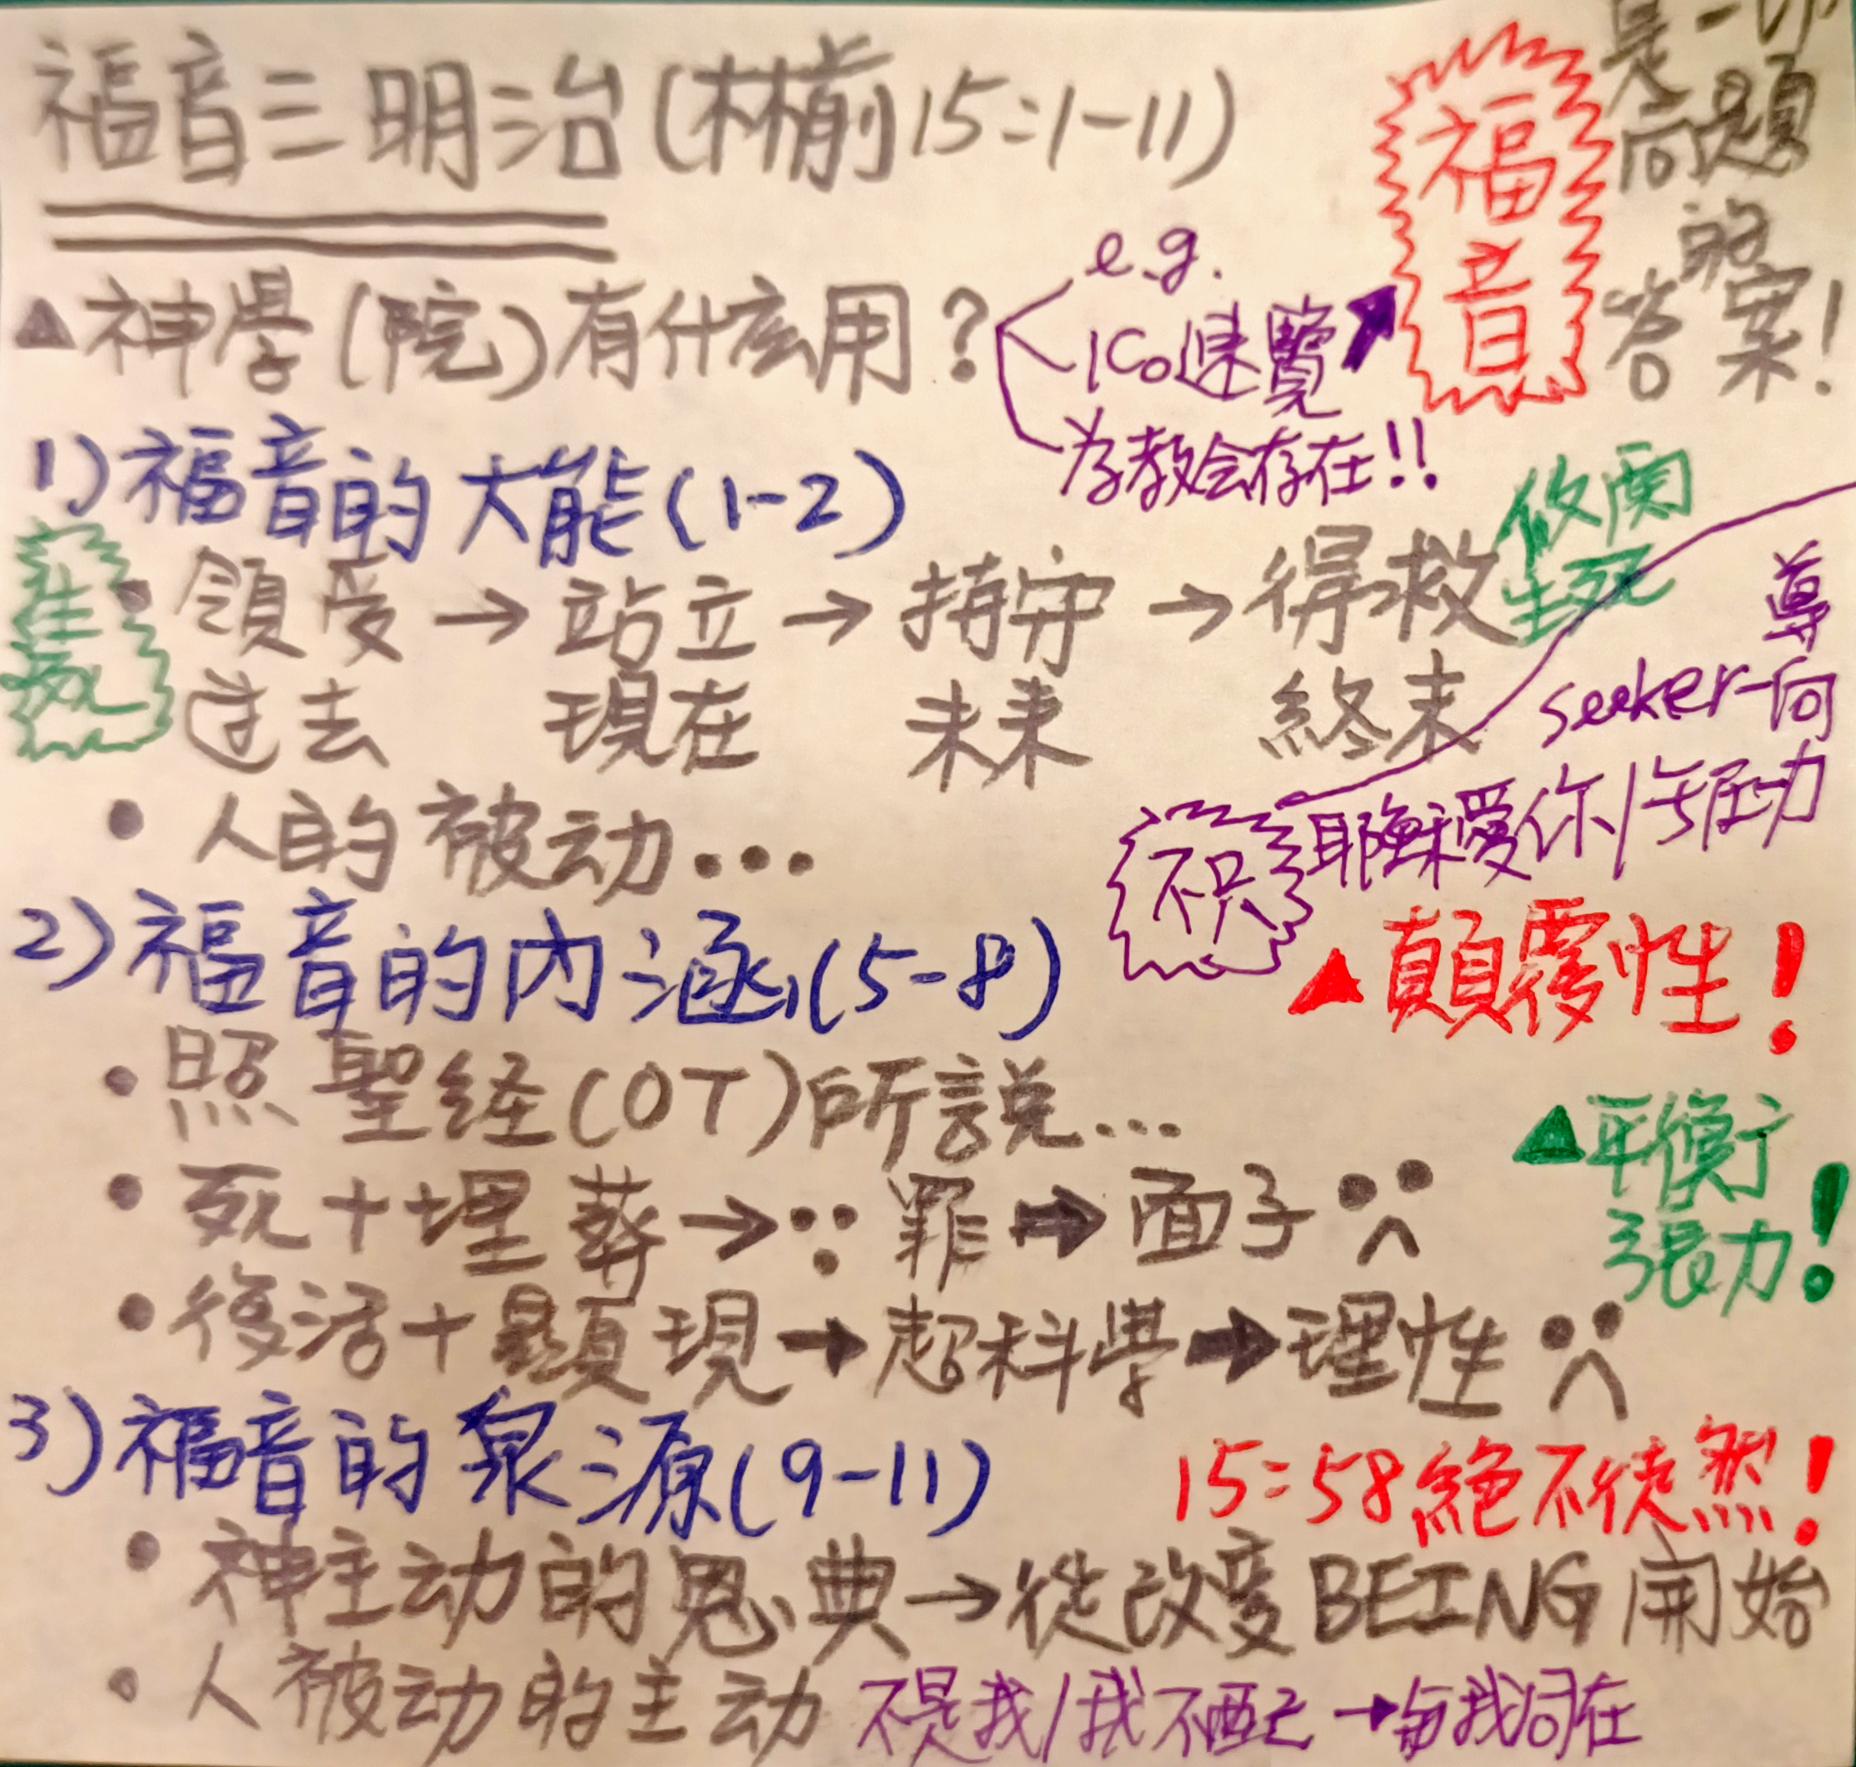 福音三明治(林前15:1-11)
福音
是一切
問題
的
答案!
▲神學(院)有什庅用?
e.g.
1Co速覽
为教会存在!!
1)福音的大能(1-2)
攸関
生死
領受→站立→持守→得救
过去 現在 未来 終末
導
seeker-向
•人的被动...
不只
耶穌愛你/成功
2)福音的内涵(5-8)
▲顛覆性!
•照聖経(OT)所說...
▲平衡
張力!
•死+埋葬→∵罪→面子
•復活+顯現→超科學→理性
3)福音的泉源(9-11)
15:58絕不徒然!
•神主动的恩典→從改变BEING開始
•人被动的主动 不是我/我不配→与我同在